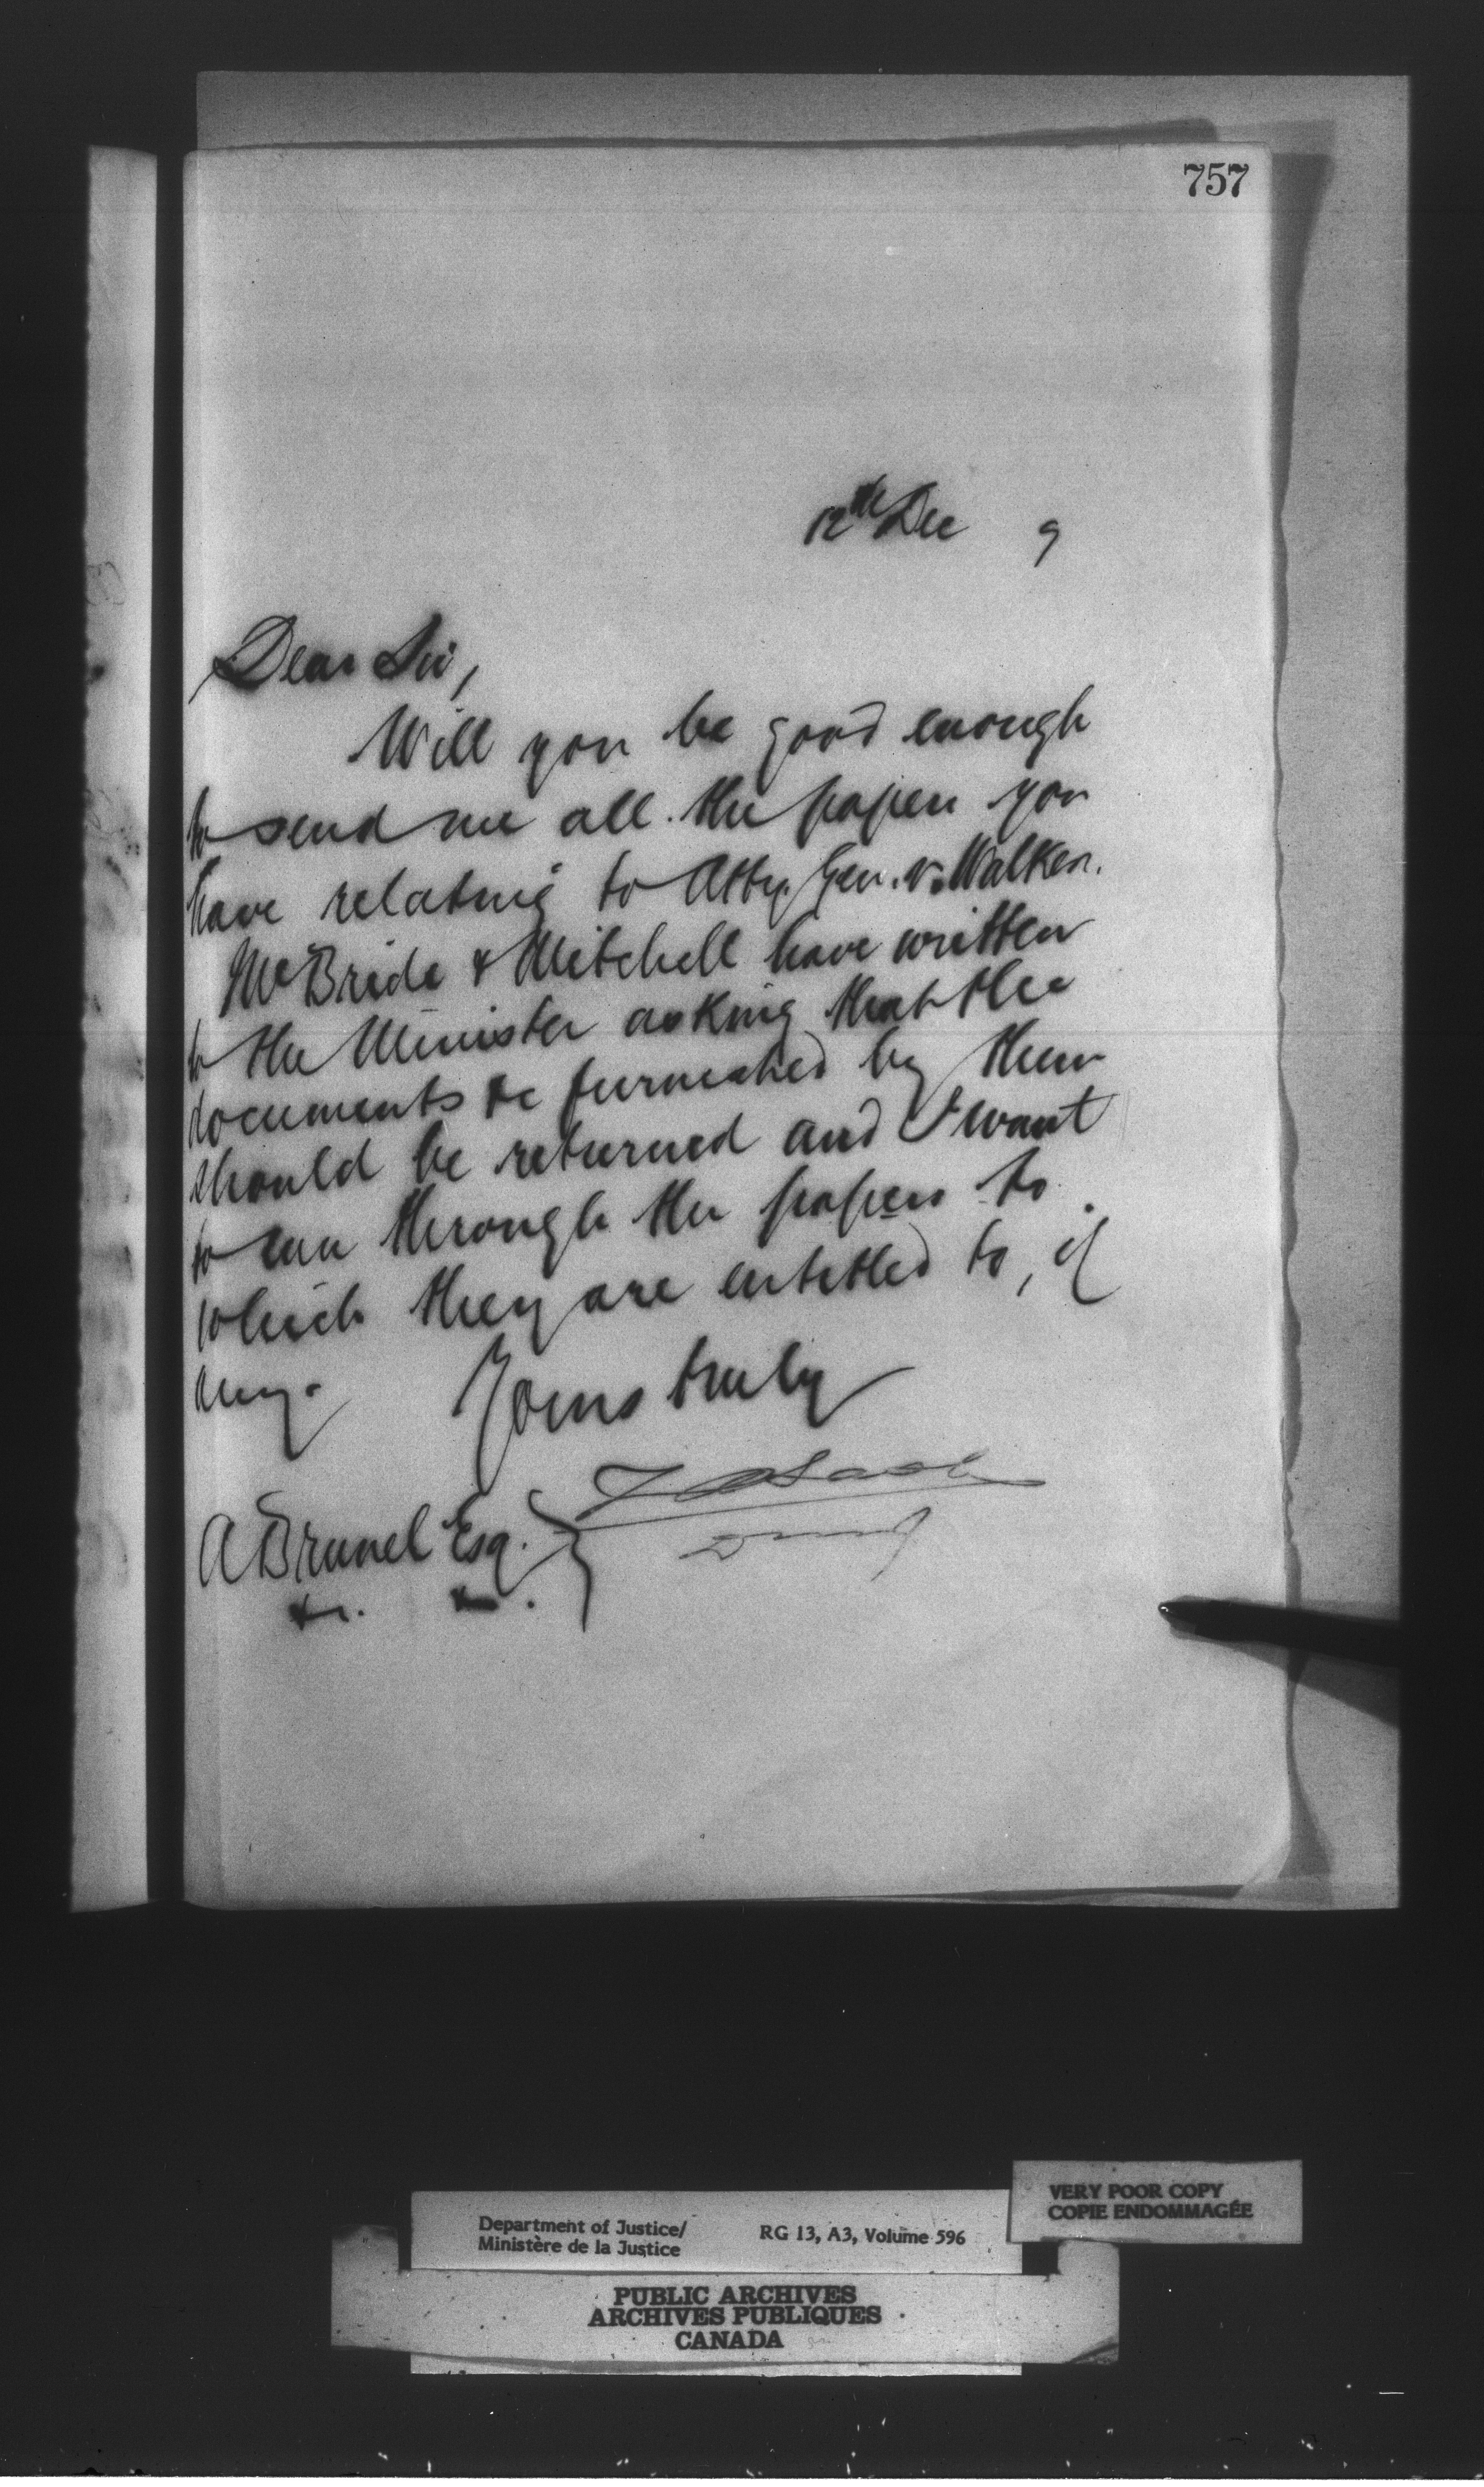 757
12th Dec 9
Dear Sir,
Will you be good enough
to send me all the papers you
have relating to Atty. Gen. v. Walker.
McBride & Mitchell have written
to the Minister asking that the
documents &c furnished by them
should be returned and I want
to run through the papers to
which they are entitled to, if
any.
Yours truly
Z A Lash
A Brunel Esq.
&c. &c.
VERY POOR COPY
COPIE ENDOMMAGÉE
Department of Justice/
Ministère de la Justice
RG 13, A3, Volume 596
PUBLIC ARCHIVES
ARCHIVES PUBLIQUES
CANADA